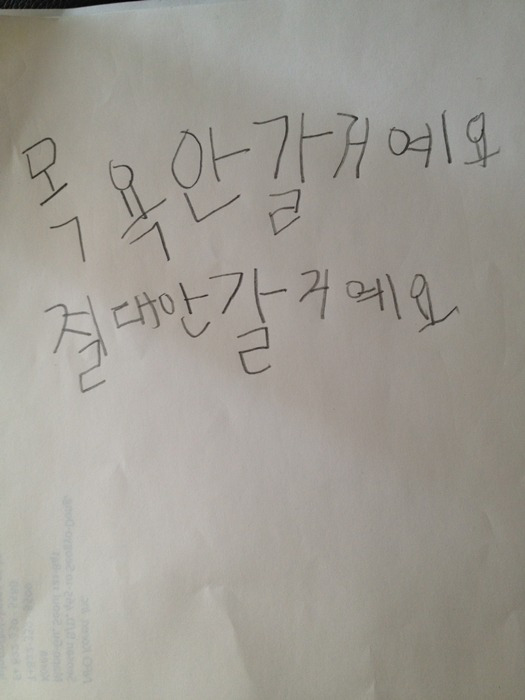 목욕안갈거예요
절대안갈거예요